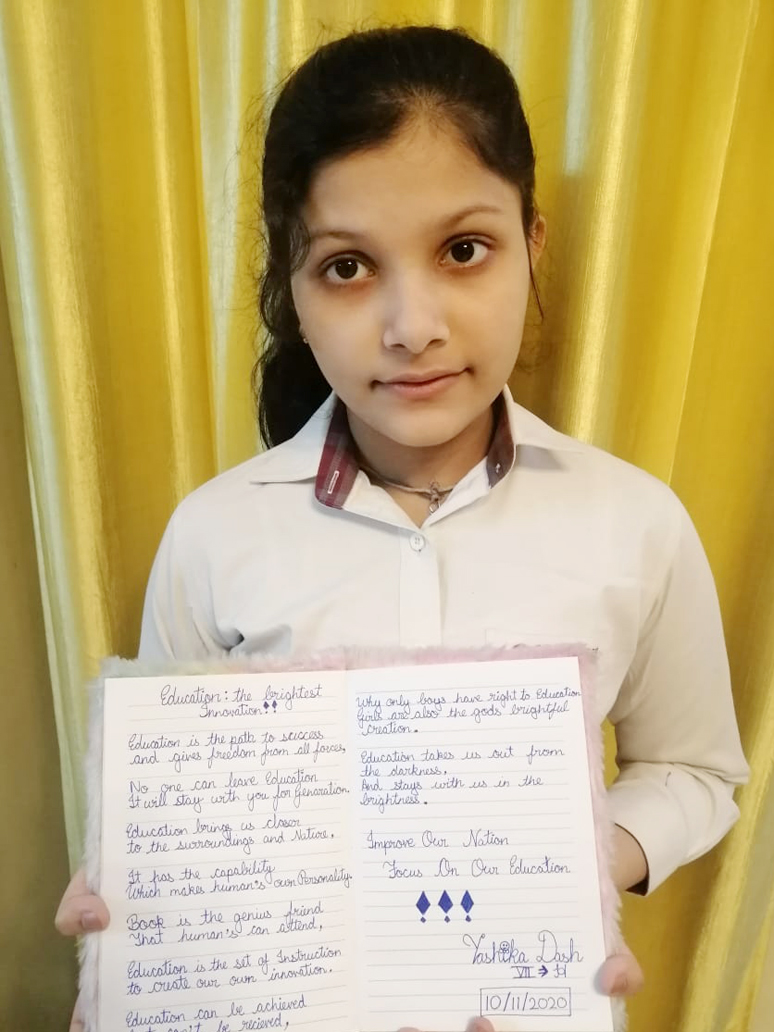 Education: the brightest
Innovation
Education is the path to success
and gives freedom from all forces,
No one can leave Education
It will stay with you for Genaration,
Education brings us closer
to the surroundings and Nature,
It has the capability
Which makes human's own Personality.
Book is the genius friend
That human's can attend,
Education is the set of Instruction
to create our own innovation.
Education can be achieved
can't be recieved,
Why only boys have right to Education
Girls are also the gods brightful
creation.
Education takes us out from
the darkness,
And stays with us in the
brightness.
Improve Our Nation
Focus On Our Education
Yashika Dash
VII →
10/11/2020